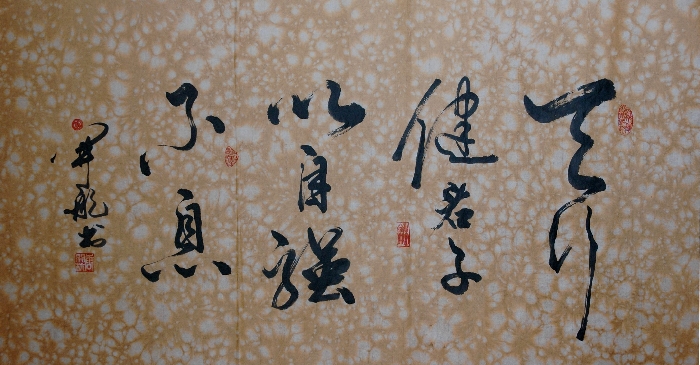 天行
健君子
以自强
不息
开龙书